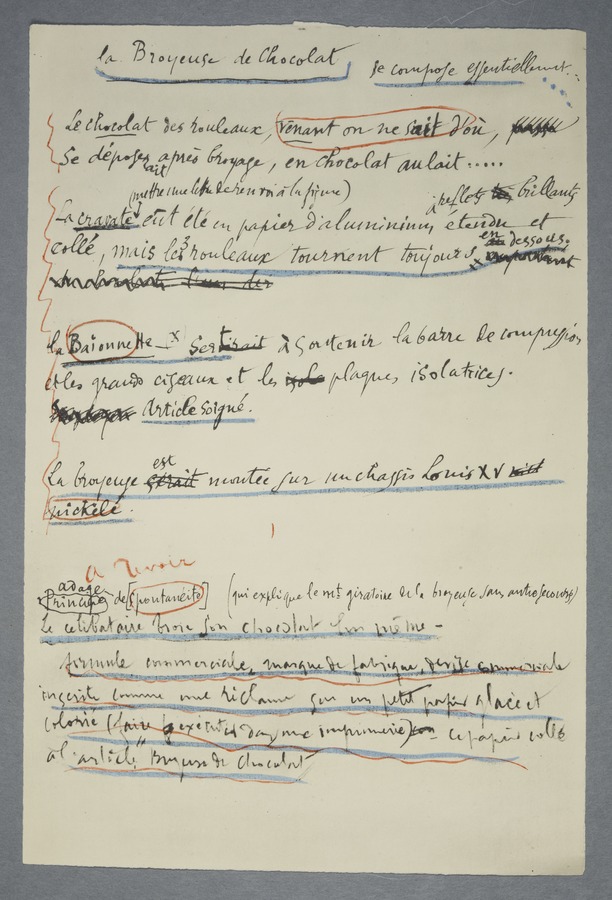 la Broyeuse de Chocolat se compose essentiellement...
Le chocolat des rouleaux, venant on ne sait d'où,
Se déposerait après broyage, en chocolat au lait.....
(mettre une lettre de renvoi à la figure) à reflets brillants
La cravate eût été en papier d'aluminium étendu et
collé, mais les 3 rouleaux tournent toujours en dessous.
la Baïonnette x Sert à Soutenir la barre de compression
et les grands ciseaux et les plaques isolatrices.
Article soigné.
La broyeuse est montée sur un chassis Louis XV
nickelé.
A revoir
adage
Principe de [spontanéité] (qui explique le mt giratoire de la broyeuse sans autre secours)
Le célibataire broie son chocolat lui même –
formule commerciale, marque de fabrique, devise commerciale
inscrite comme une réclame sur un petit papier glacé et
colorié (faire exécuter dans une imprimerie) – ce papier collé
à l'article "Broyeuse de Chocolat"